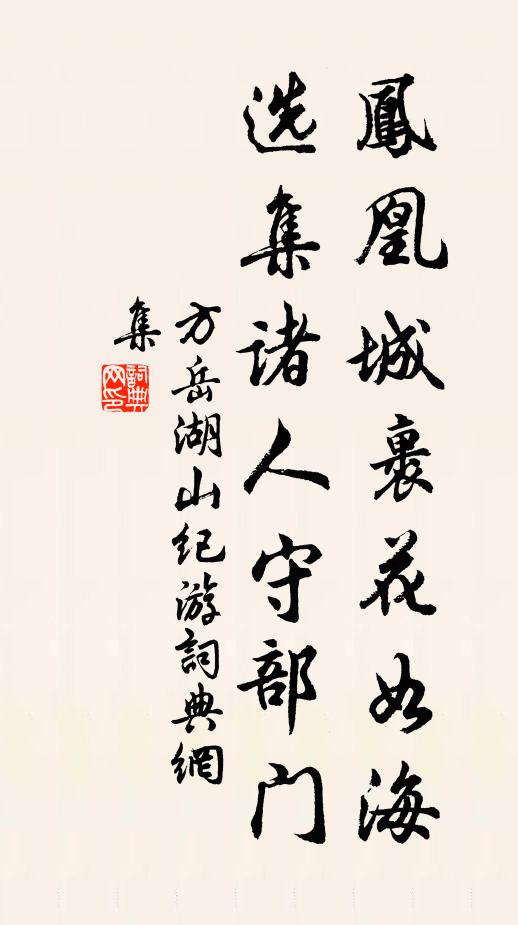 鳳凰城裏花如海
选集诸人守部门
方岳湖山纪游詞典網
集
詞典
网印